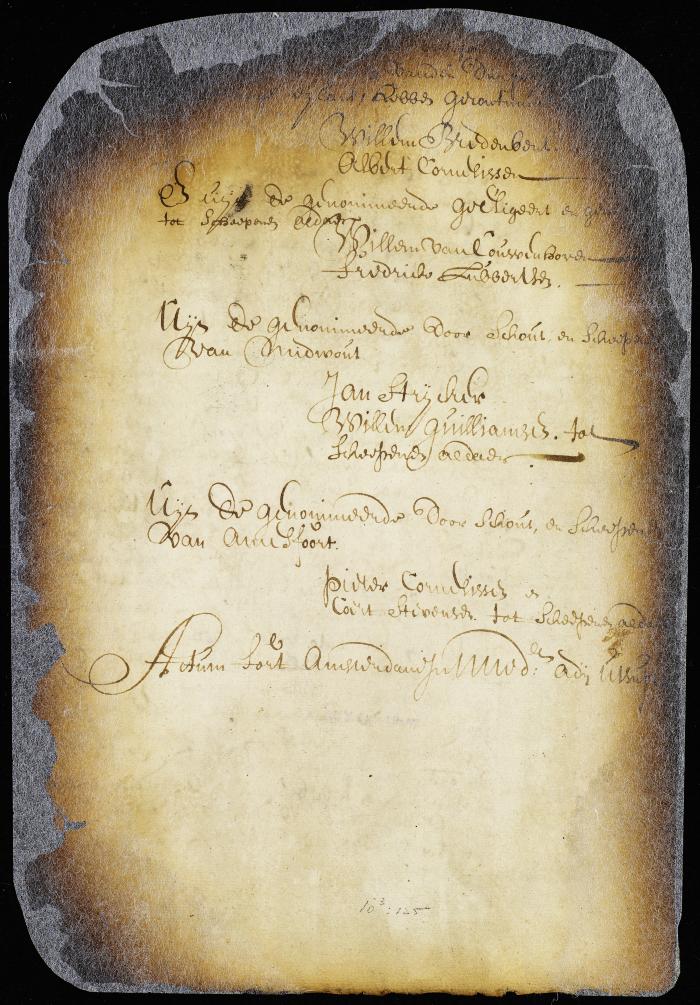 vanden
hebben
Willem Bredenbent
Albert Cornelissen
Uijt de genomineerde geeligeert en
tot Scheepenen aldaer
Willem van Couwenhoven
Fredrick Lubbertsen.
Uijt de genomineerde door Schout, en Scheepen
van Midwout
Jan Strijcker
Willem Guilliamsen. tot
Scheepenen aldaer
Uijt de genomineerde door Schout, en Scheepenen
van Amesfoort.
Pieter Cornelissen en
Coert Stevensen tot Scheepenen aldaer
Actum fort Amsterdam In N Ned: Adij
10³:125